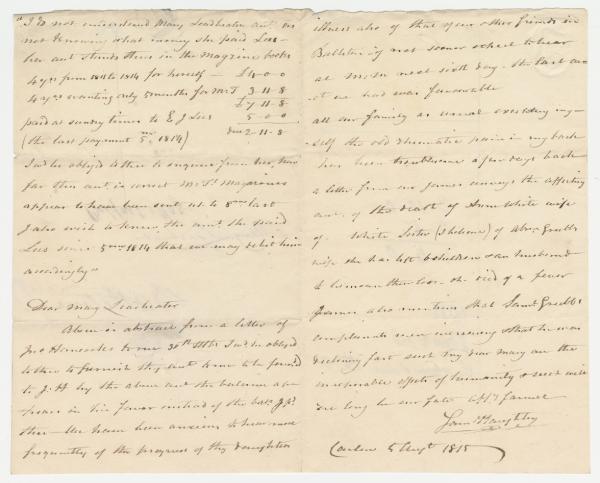 "I do not understand Mary Leadbeater's acct. or
not knowing what money she paid Lees
her acct. stands thus in the Magazine books
4 yrs from 1811 to 1814 for herself — £4.0.0
4 yrs wanting only 5 months for Mr T 3.11.8
£7.11.8
paid at sundry times to E J Lees 5.0.0
(the last payment 5 mo. 1814) due 2.11.8
I wd. be obliged to thee to enquire from her, how
far this acct. is correct Mr T's Magazines
appear to have been sent up to 8 mo. last
I also wish to know the amt. she paid
Lees since 5 mo. 1814 that we may debit him
accordingly"
Dear Mary Leadbeater
Above is abstract from a letter of
Jno Hancock's to me 30th Ulto I wd. be obliged
to thee to furnish thy acct to me to be forwd
to J.H by the above and the balance
appears in his favor instead of the
thee — We have been anxious to hear more
frequently of the progress of thy daughter's
illness also of that of our other friends in
Ballitore if not sooner expect to hear
at M.M next sixth day — the last
we had was favourable
all our family as usual excepting my-
self the old rheumatic pain in my back
has been troublesome a few days back
a letter from our James conveys the affecting
acct. of the death of Anne White wife
of White Sister (I believe) of Abm. Grubb's
wife she has left 6 children & an husband
to bemoan their loss she died of a fever
James also mentions that Saml. Grubb's
complaints were increasing & that he was
declining fast such my dear Mary are the
inseparable effects of humanity & such will
ere long be our fate affy. farewel
Saml. Haughton
Carlow 5 Augt. 1815